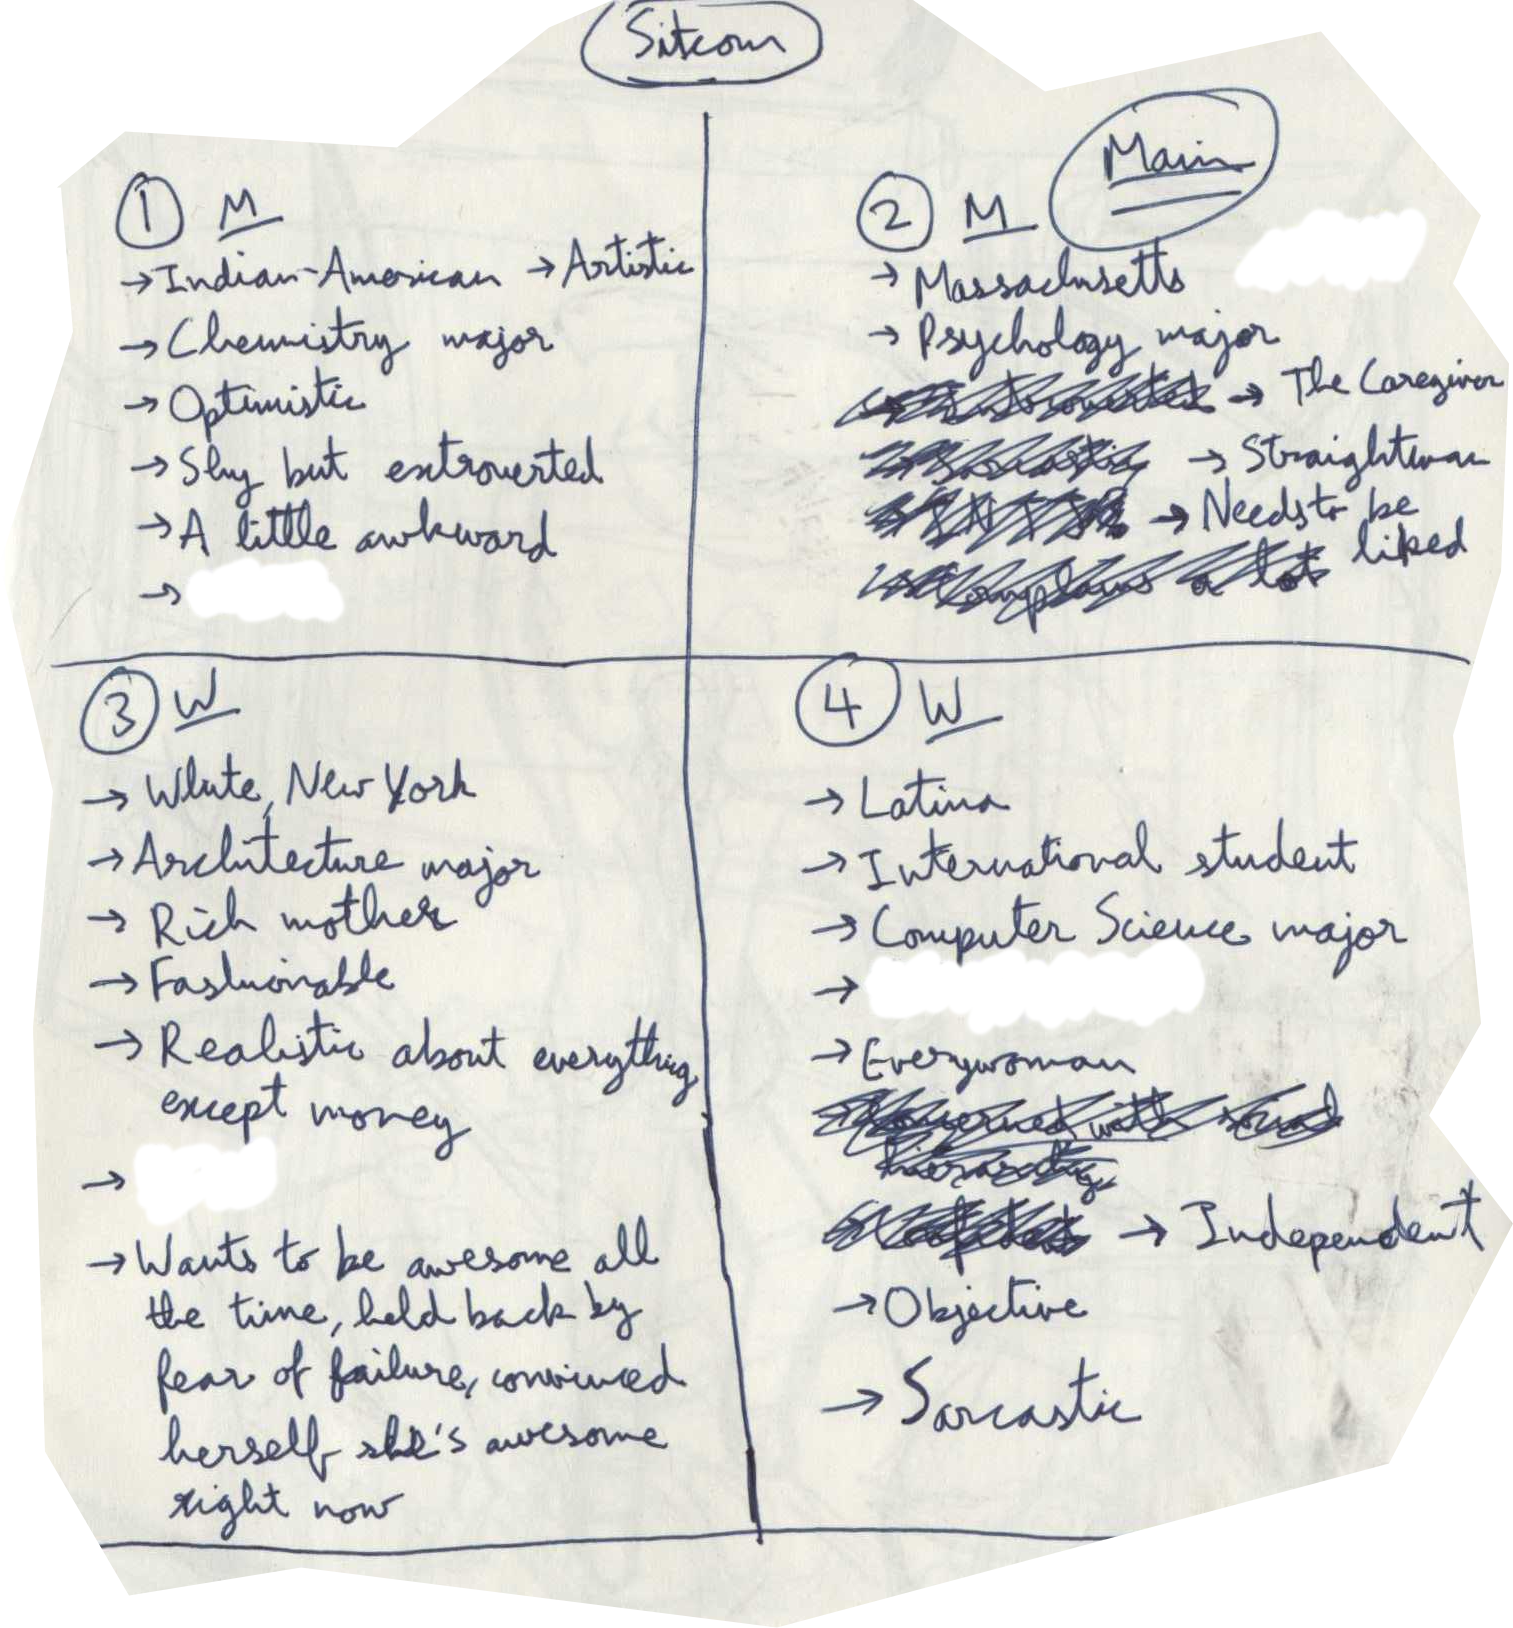 Sitcom
① M
→ Indian-American → Artistic
→ Chemistry major
→ Optimistic
→ Shy but extroverted
→ A little awkward
→
② M Main
→ Massachusetts
→ Psychology major
→ The Caregiver
→ Straightman
→ Needs to be
liked
Complains a lot
③ W
→ White, New York
→ Architecture major
→ Rich mother
→ Fashionable
→ Realistic about everything
except money
→
→ Wants to be awesome all
the time, held back by
fear of failure, convinced
herself she's awesome
right now
④ W
→ Latina
→ International student
→ Computer Science major
→
→ Everywoman
Concerned with social
hierarchy
→ Independent
→ Objective
→ Sarcastic